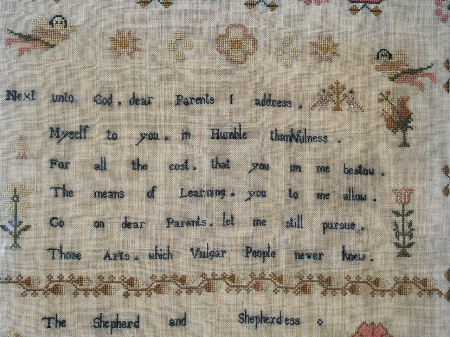 Next unto God . dear Parents I address .
Myself to you . in Humble thankfulness .
For all the cost . that you on me bestow .
The means of Learning . you to me allow .
Go on dear Parents . let me still pursue .
Those Arts . which Vulgar People never knew .
The Shepherd and Shepherdess